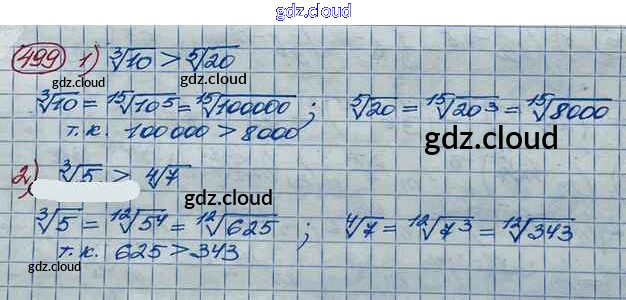 gdz.cloud
499 1) ∛10 > ⁵√20
gdz.cloud gdz.cloud
∛10 = ¹⁵√10⁵ = ¹⁵√100000 ; ⁵√20 = ¹⁵√20³ = ¹⁵√8000
т.к. 100000 > 8000
gdz.cloud
2) ∛5 > ⁴√7
gdz.cloud
∛5 = ¹²√5⁴ = ¹²√625 ; ⁴√7 = ¹²√7³ = ¹²√343
gdz.cloud
т.к. 625 > 343
gdz.cloud